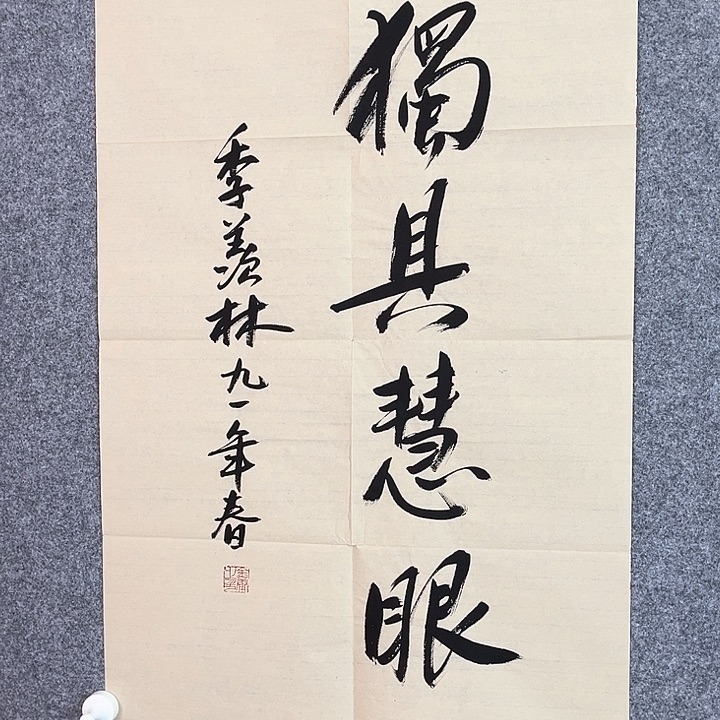 獨具慧眼
季羨林九一年春